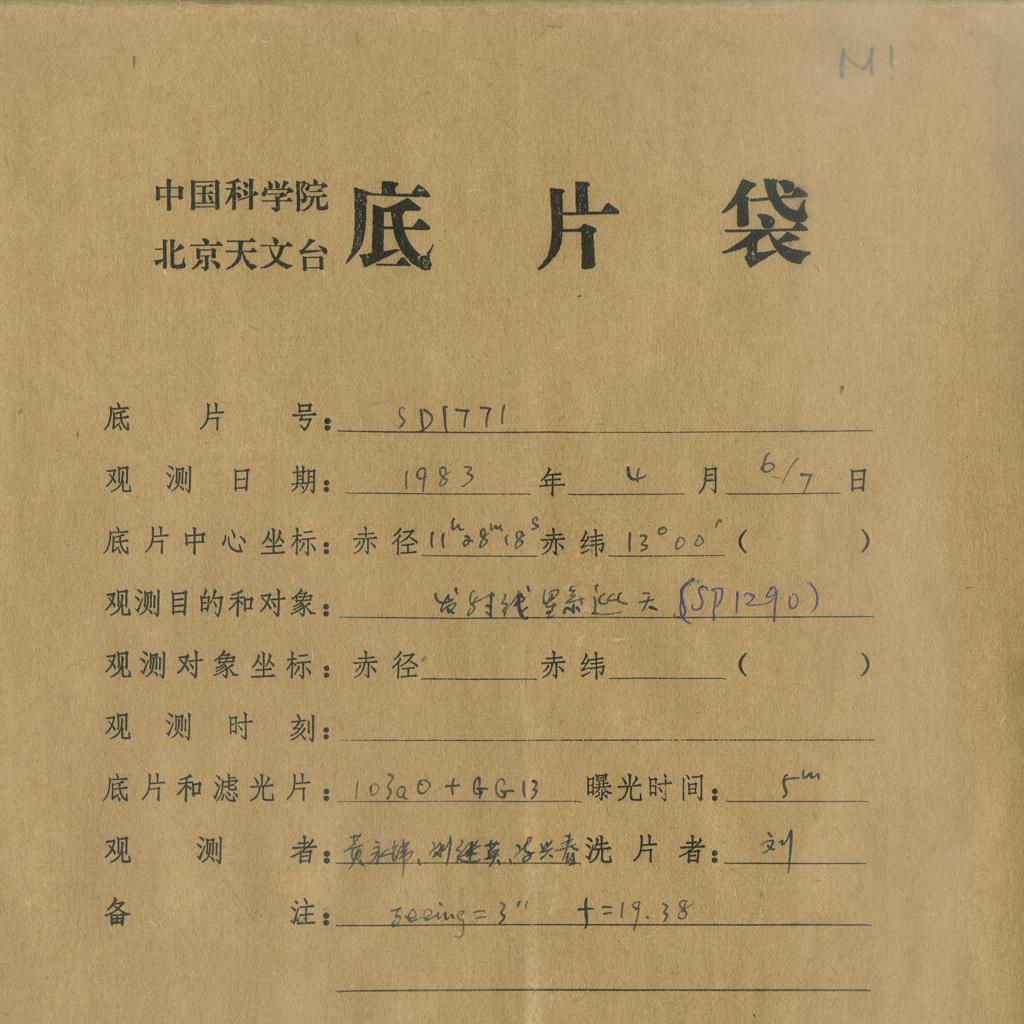 M!
中国科学院
北京天文台
底片袋
底片号：SD1771
观测日期：1983年4月6/7日
底片中心坐标：赤径11ʰ28ᵐ18ˢ赤纬13°00′（ ）
观测目的和对象：发射线星系巡天（SP1290）
观测对象坐标：赤径 赤纬 （ ）
观测时刻：
底片和滤光片：103aO+GG13 曝光时间：5ᵐ
观测者：黄永炜、刘继英、 洗片者：刘
备注：seeing=3″ t=19.38